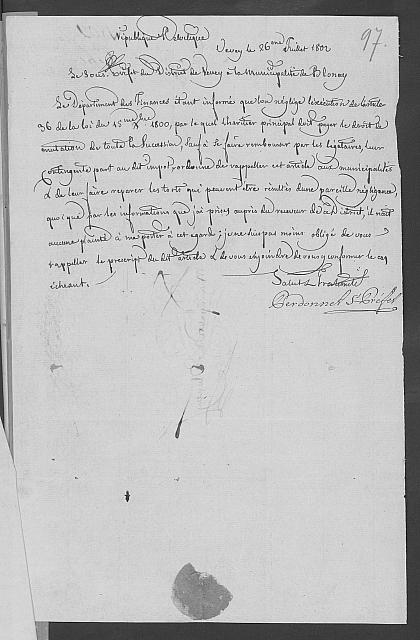 97.
République Helvétique
Vevey le 26me Juillet 1802
Le Sous-Préfet du District de Vevey à la Municipalité de Blonay
Le Département des Finances étant informé que l'on néglige l'exécution de l'article
36 de la loi du 15me Xbre 1800, par lequel l'héritier principal doit payer le droit de
mutation de toute la succession, sauf à se faire rembourser par les légataires, leur
contingente part au dit impot, ordonne de rappeller cet article aux municipalités
& de leur faire reparer les torts que peuvent être résultés d'une pareille négligence,
quoique par les informations que j'ai prises auprès du receveur de ce District, il n'ait
aucune plainte à me porter à cet égard; je ne suis pas moins obligé de vous
rappeller le prescript du dit article & de vous enjoindre de vous y conformer le cas
échéant.
Salut & Fraternité
Perdonnet S. Préfet